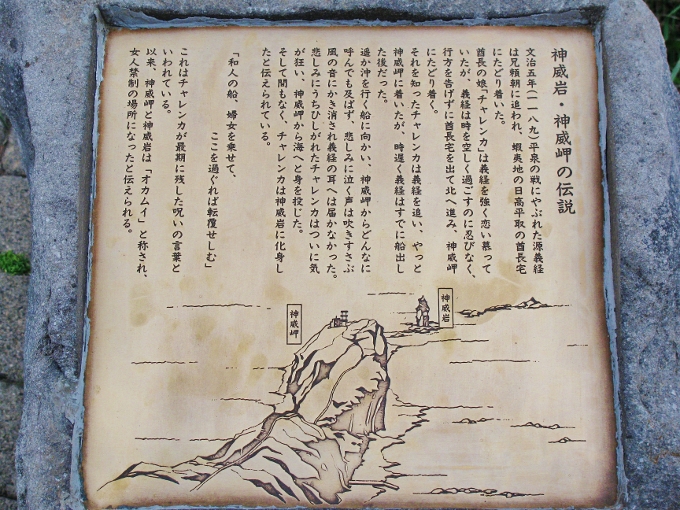 神威岩・神威岬の伝説
文治五年（一一八九）平泉の戦にやぶれた源義経
は兄頼朝に追われ、蝦夷地の日高平取の酋長宅
にたどり着いた。
酋長の娘「チャレンカ」は義経を強く恋い慕って
いたが、義経は時を空しく過ごすのに忍びなく、
行方を告げずに酋長宅を出て北へ進み、神威岬
にたどり着く。
それを知ったチャレンカは義経を追い、やっと
神威岬に着いたが、時遅く義経はすでに船出し
た後だった。
遥か沖を行く船に向かい、神威岬からどんなに
呼んでも及ばず、悲しみに泣く声は吹きすさぶ
風の音にかき消され義経の耳へは届かなかった。
悲しみにうちひしがれたチャレンカはついに気
が狂い、神威岬から海へと身を投じた。
そして間もなく、チャレンカは神威岩に化身し
たと伝えられている。
「和人の船、婦女を乗せて、
ここを過ぐれば転覆せしむ」
これはチャレンカが最期に残した呪いの言葉と
いわれている。
以来、神威岬と神威岩は「オカムイ」と称され、
女人禁制の場所になったと伝えられる。
神威岩
神威岬